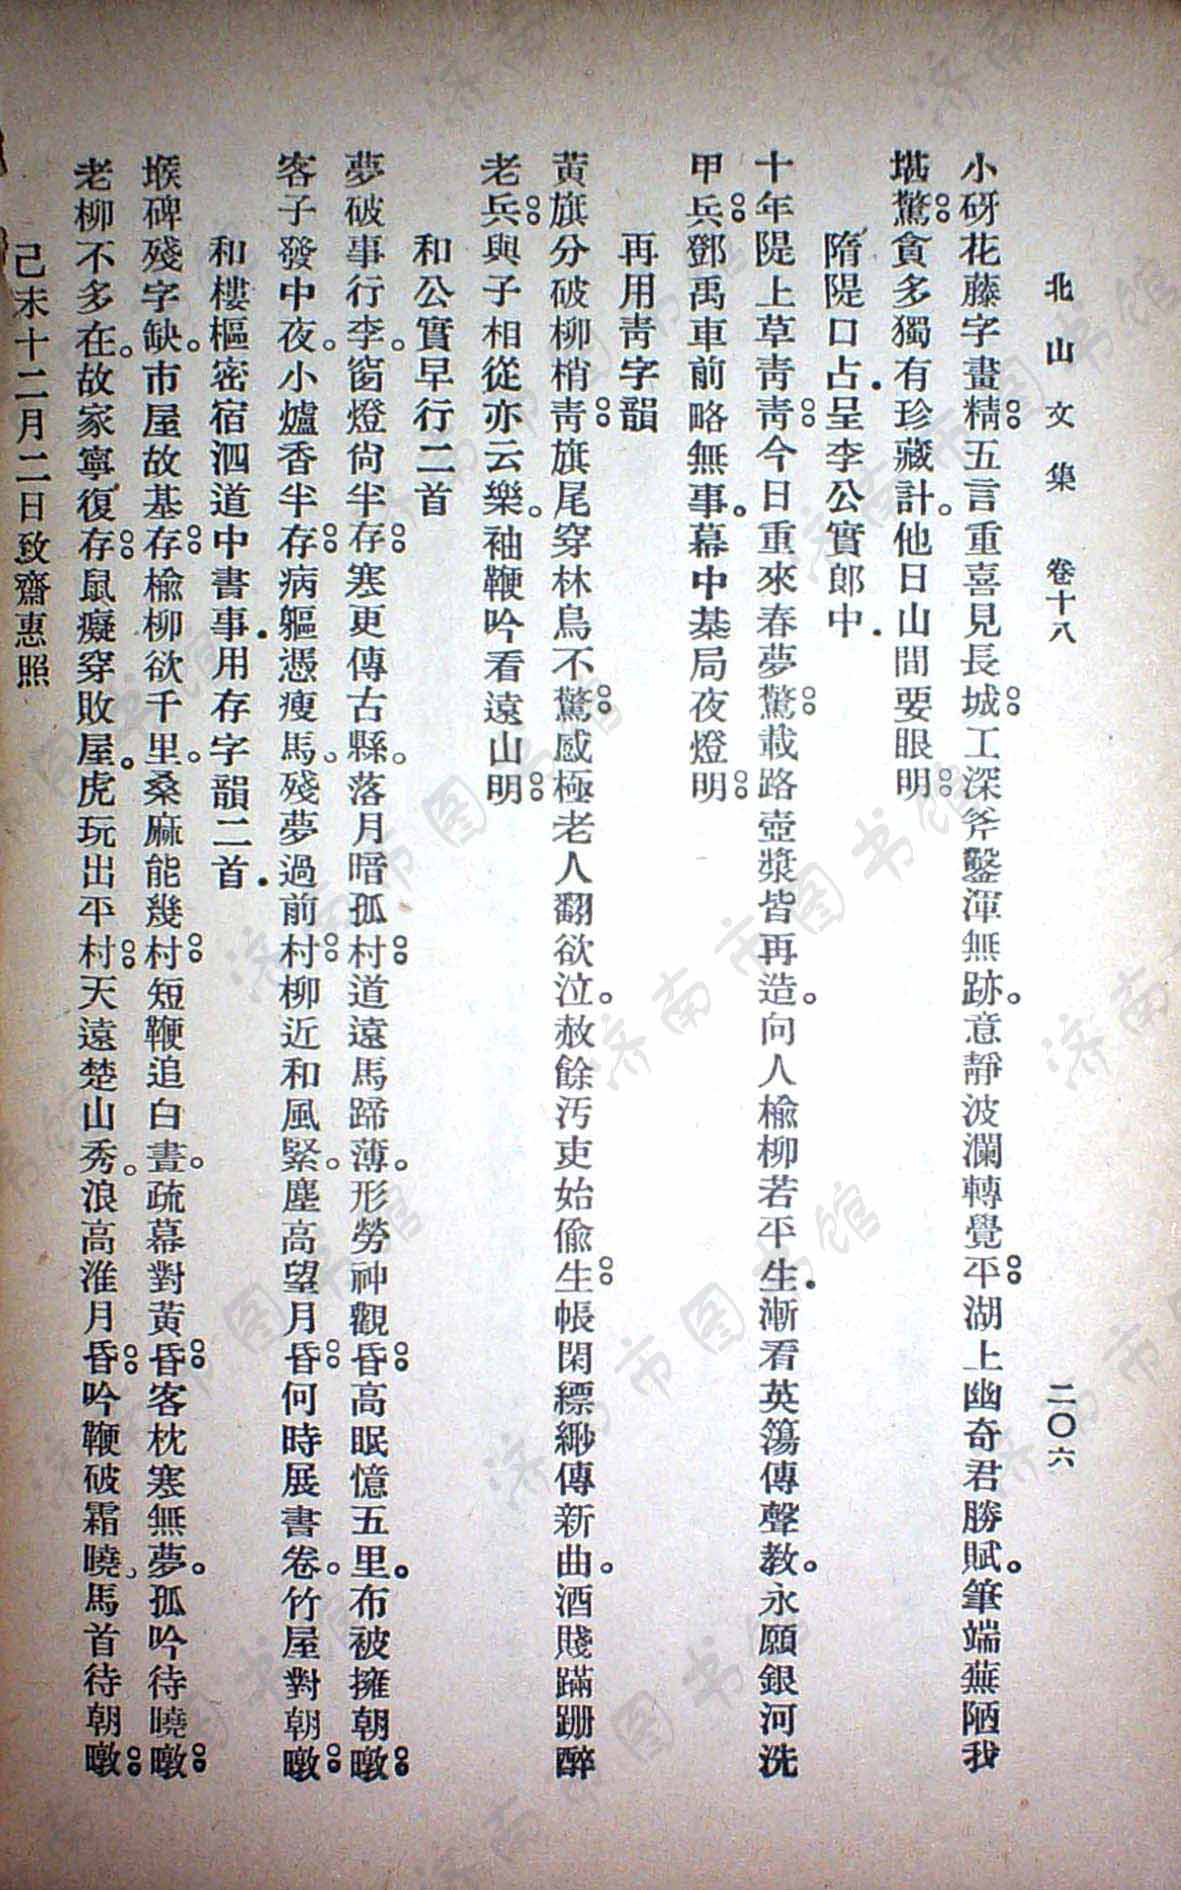 北山文集 卷十八 二〇六
小硏花藤字畫精。五言重喜見長城。工深斧鑿渾無跡。意靜波瀾轉覺平。湖上幽奇君勝賦。筆端蕪陋我
堪驚。貪多獨有珍藏計。他日山間要眼明。
隋隄口占。呈李公實郎中。
十年隄上草靑靑。今日重來春夢驚。載路壺漿皆再造。向人楡柳若平生。漸看英簜傳聲教。永願銀河洗
甲兵。鄧禹車前略無事。幕中棊局夜燈明。
再用靑字韻
黃旗分破柳梢靑。旗尾穿林鳥不驚。感極老人翻欲泣。赦餘汚吏始偸生。帳閑縹緲傳新曲。酒賤蹣跚醉
老兵。與子相從亦云樂。袖鞭吟看遠山明。
和公實早行二首
夢破事行李。窗燈尙半存。寒更傳古縣。落月暗孤村。道遠馬蹄薄。形勞神觀昏。高眠憶五里。布被擁朝暾。
客子發中夜。小爐香半存。病軀憑瘦馬。殘夢過前村。柳近和風緊。塵高望月昏。何時展書卷。竹屋對朝暾。
和樓樞密宿泗道中書事。用存字韻二首。
堠碑殘字缺。市屋故基存。楡柳欲千里。桑麻能幾村。短鞭追白晝。疏幕對黃昏。客枕寒無夢。孤吟待曉暾。
老柳不多在。故家寧復存。鼠癡穿敗屋。虎玩出平村。天遠楚山秀。浪高淮月昏。吟鞭破霜曉。馬首待朝暾。
己未十二月二日致齋惠照